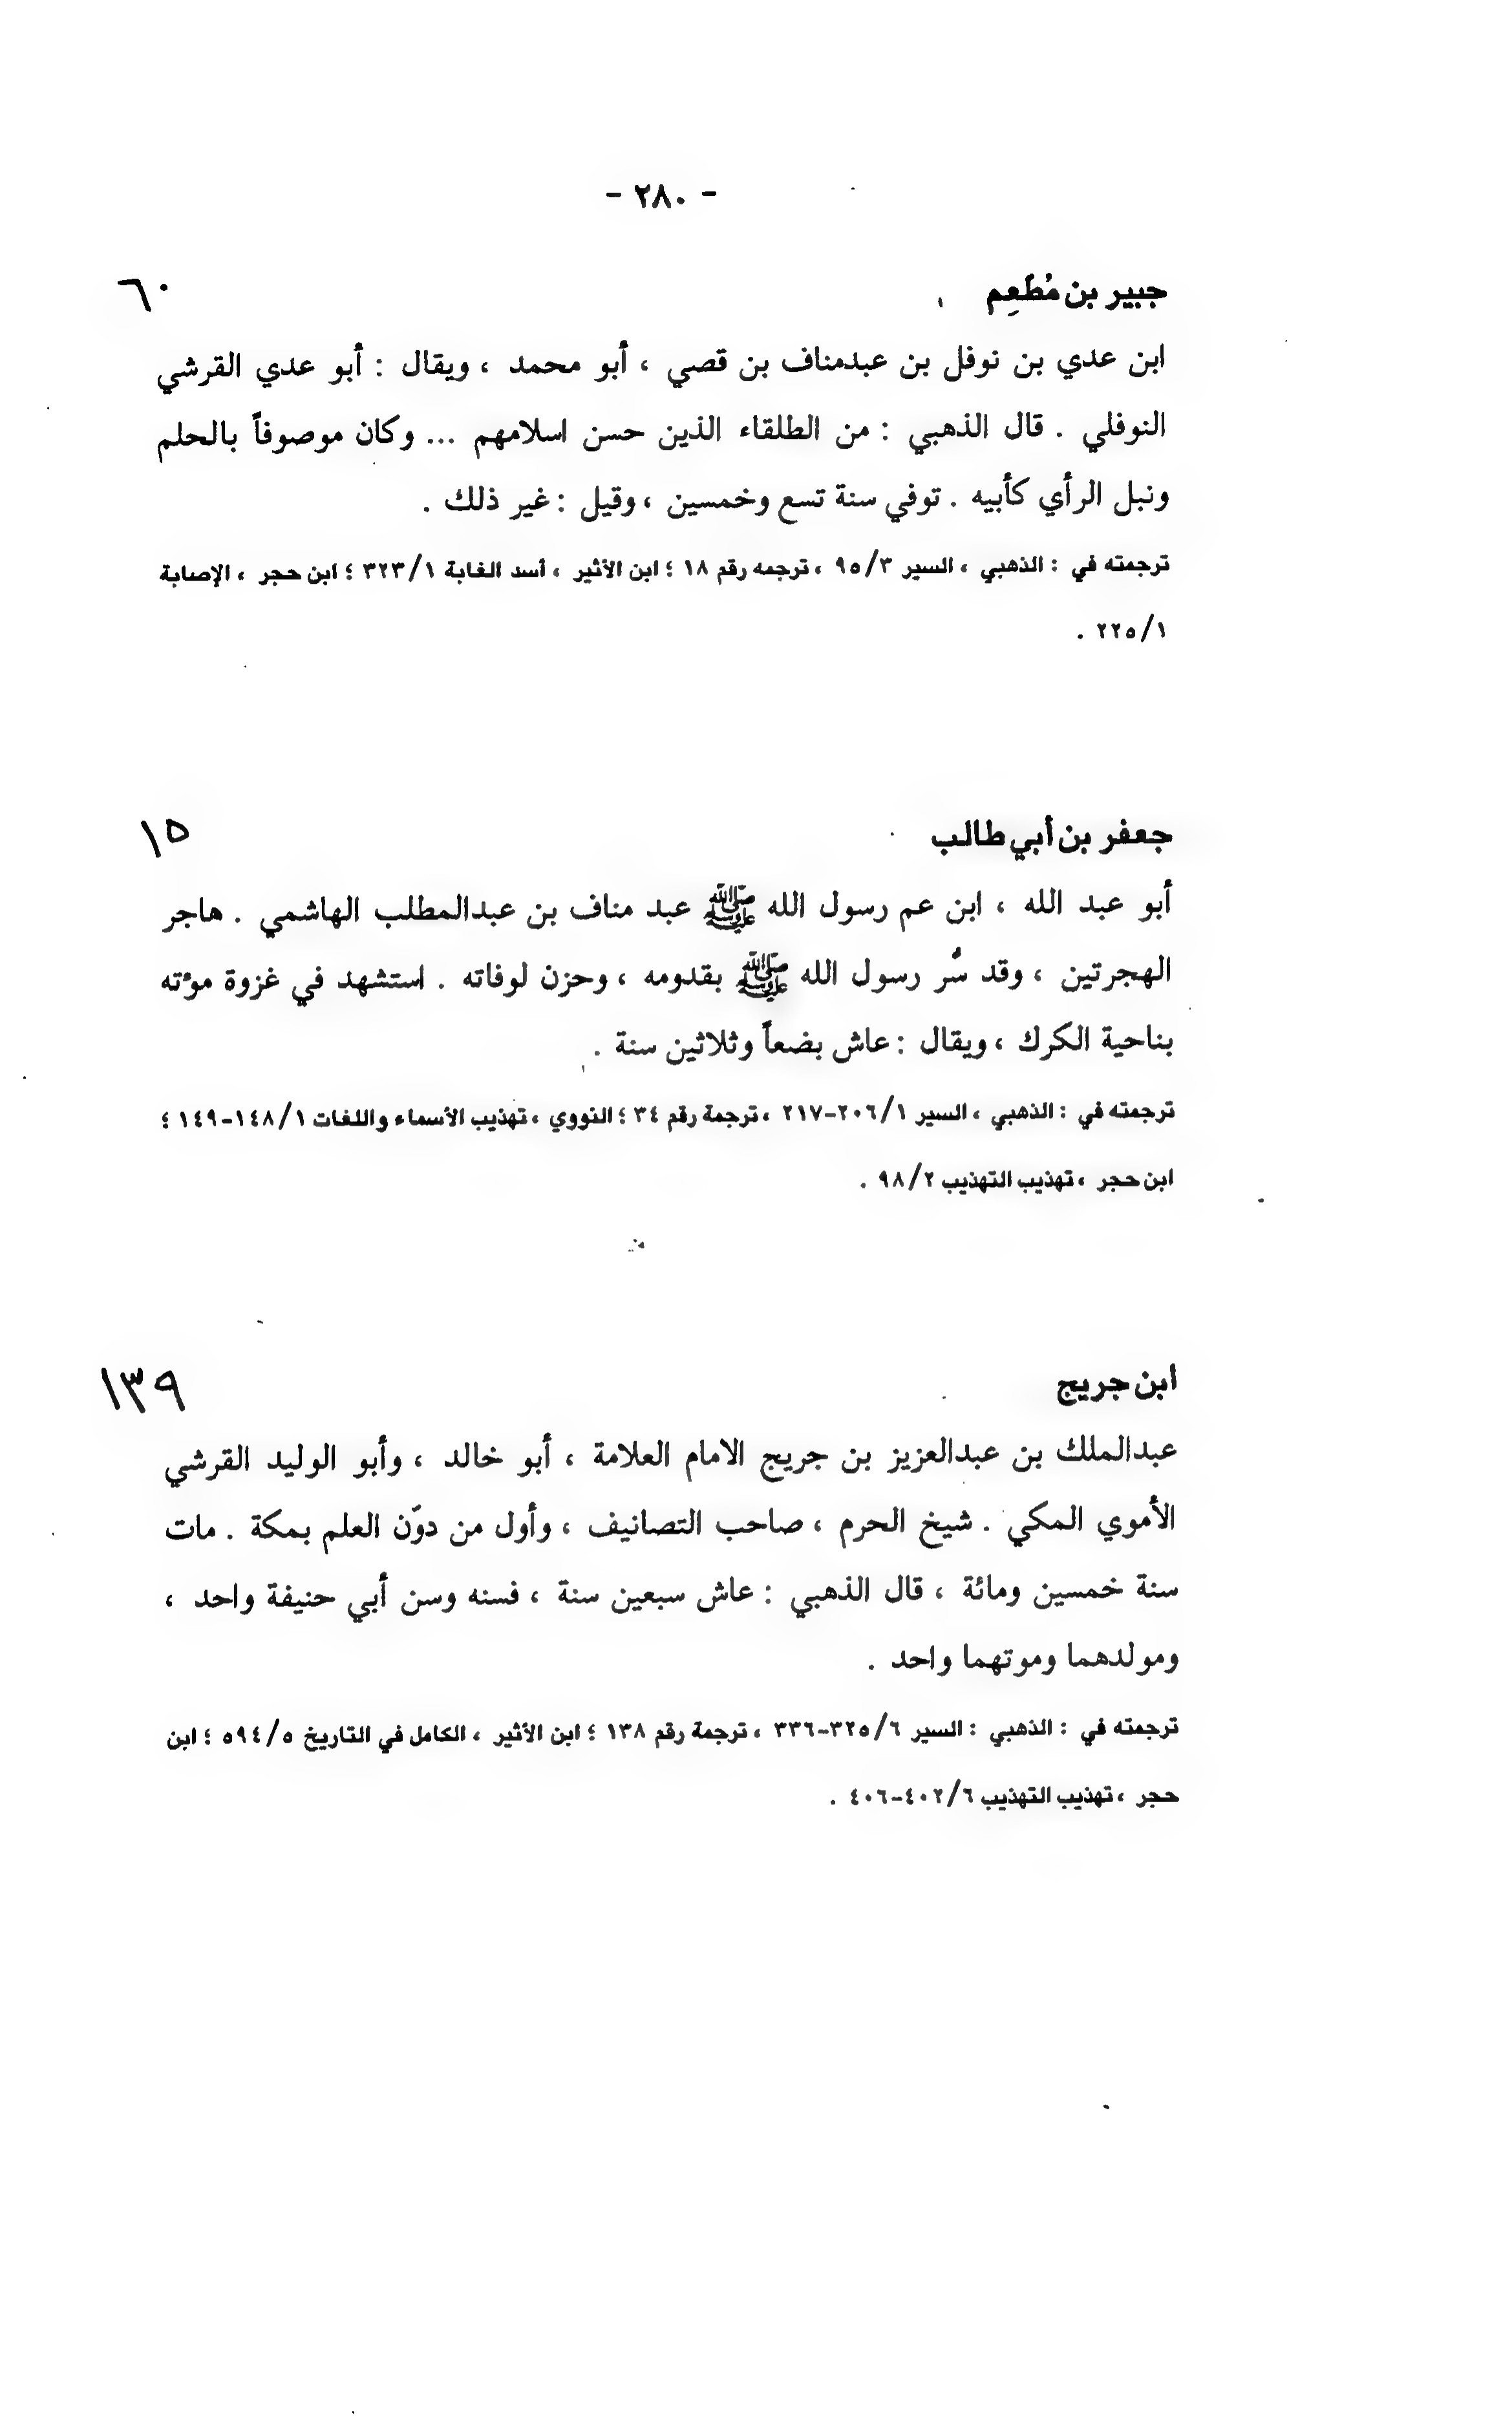 - ٢٨٠ -
جبير بن مُطَعِم ٦٠
ابن عدي بن نوفل بن عبدمناف بن قصي ، أبو محمد ، ويقال : أبو عدي القرشي
النوفلي . قال الذهبي : من الطلقاء الذين حسن اسلامهم ... وكان موصوفاً بالحلم
ونبل الرأي كأبيه . توفي سنة تسع وخمسين ، وقيل : غير ذلك .
ترجمته في : الذهبي ، السير ٩٥/٣ ، ترجمه رقم ١٨ ؛ ابن الأثير ، أسد الغابة ٣٢٣/١ ؛ ابن حجر ، الإصابة
٢٢٥/١ .
جعفر بن أبي طالب ١٥
أبو عبد الله ، ابن عم رسول الله ﷺ عبد مناف بن عبدالمطلب الهاشمي . هاجر
الهجرتين ، وقد سُّر رسول الله ﷺ بقدومه ، وحزن لوفاته . استشهد في غزوة مؤته
بناحية الكرك ، ويقال : عاش بضعاً وثلاثين سنة .
ترجمته في : الذهبي ، السير ٢٠٦/١-٢١٧ ، ترجمة رقم ٣٤ ؛ النووي ، تهذيب الأسماء واللغات ١٤٨/١-١٤٩ ؛
ابن حجر ، تهذيب التهذيب ٩٨/٢ .
ابن جريج ١٣٩
عبدالملك بن عبدالعزيز بن جريج الامام العلامة ، أبو خالد ، وأبو الوليد القرشي
الأموي المكي . شيخ الحرم ، صاحب التصانيف ، وأول من دوّن العلم بمكة . مات
سنة خمسين ومائة ، قال الذهبي : عاش سبعين سنة ، فسنه وسن أبي حنيفة واحد ،
ومولدهما وموتهما واحد .
ترجمته في : الذهبي : السير ٣٢٥/٦-٣٣٦ ، ترجمة رقم ١٣٨ ؛ ابن الأثير ، الكامل في التاريخ ٥٩٤/٥ ؛ ابن
حجر ، تهذيب التهذيب ٤٠٢/٦-٤٠٦ .